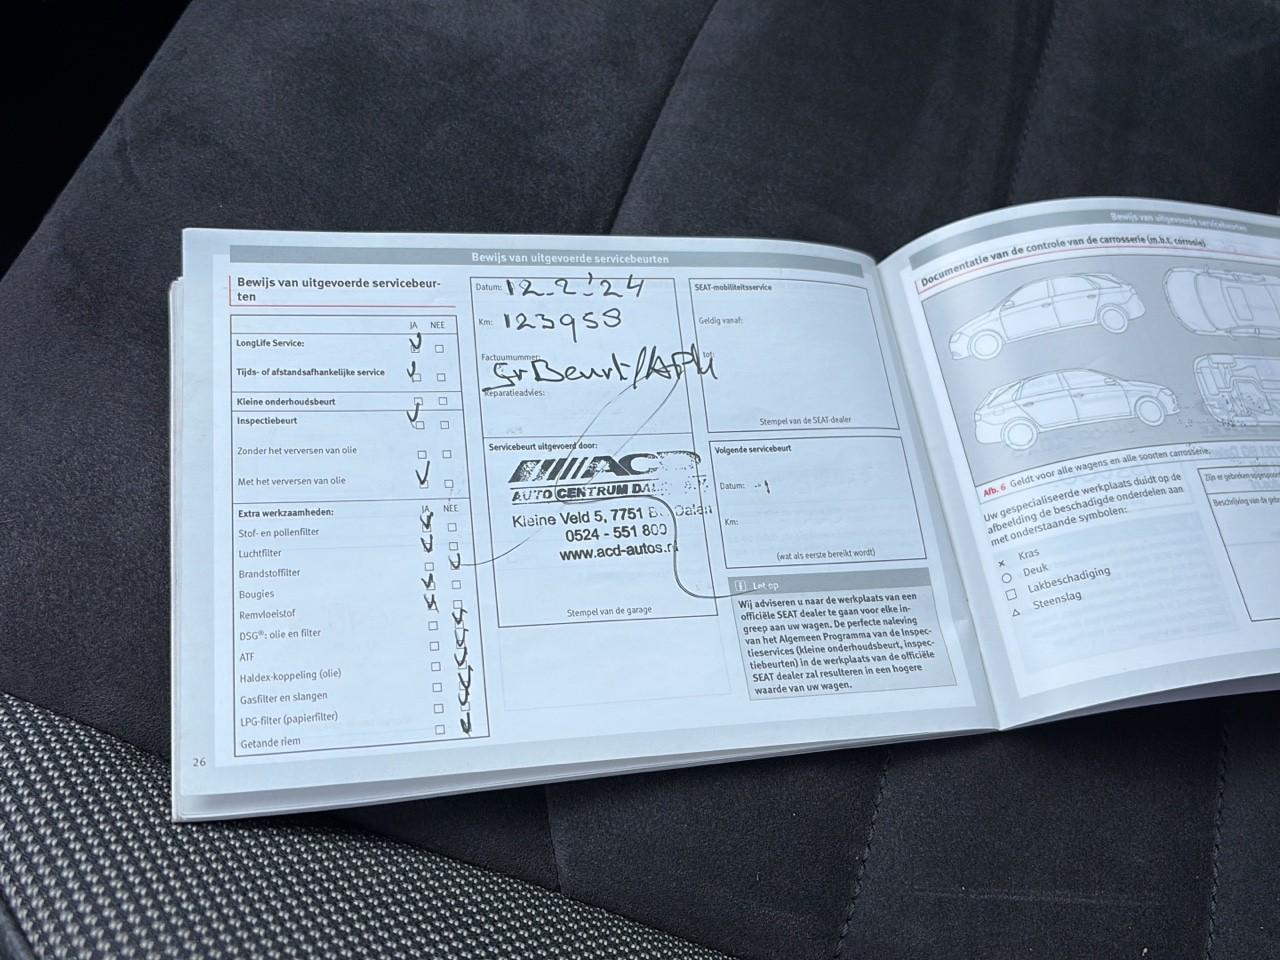 Bewijs van uitgevoerde servicebeurten
Bewijs van uitgevoerde servicebeur-
ten
JA NEE
LongLife Service:
Tijds- of afstandsafhankelijke service
Kleine onderhoudsbeurt
Inspectiebeurt
Zonder het verversen van olie
Met het verversen van olie
Extra werkzaamheden: JA NEE
Stof- en pollenfilter
Luchtfilter
Brandstoffilter
Bougies
Remvloeistof
DSG®: olie en filter
ATF
Haldex-koppeling (olie)
Gasfilter en slangen
LPG-filter (papierfilter)
Getande riem
26
Datum: 12-2-'24
Km: 123958
Factuurnummer:
Gr Beurt/APK
Reparatieadvies:
Servicebeurt uitgevoerd door:
ACD
AUTO CENTRUM
Kleine Veld 5, 7751 Dalen
0524 - 551 800
www.acd-autos.nl
Stempel van de garage
SEAT-mobiliteitsservice
Geldig vanaf:
tot:
Stempel van de SEAT-dealer
Volgende servicebeurt
Datum:
Km:
(wat als eerste bereikt wordt)
Let op
Wij adviseren u naar de werkplaats van een
officiële SEAT dealer te gaan voor elke in-
greep aan uw wagen. De perfecte naleving
van het Algemeen Programma van de Inspec-
tieservices (kleine onderhoudsbeurt, inspec-
tiebeurten) in de werkplaats van de officiële
SEAT dealer zal resulteren in een hogere
waarde van uw wagen.
Bewijs van uitgevoerde servicebeurten
Documentatie van de controle van de carrosserie (m.b.t. corrosie)
Afb. 6 Geldt voor alle wagens en alle soorten carrosserie.
Uw gespecialiseerde werkplaats duidt op de
afbeelding de beschadigde onderdelen aan
met onderstaande symbolen:
Kras
Deuk
Lakbeschadiging
Steenslag
Zijn er gebreken
Beschrijving van de